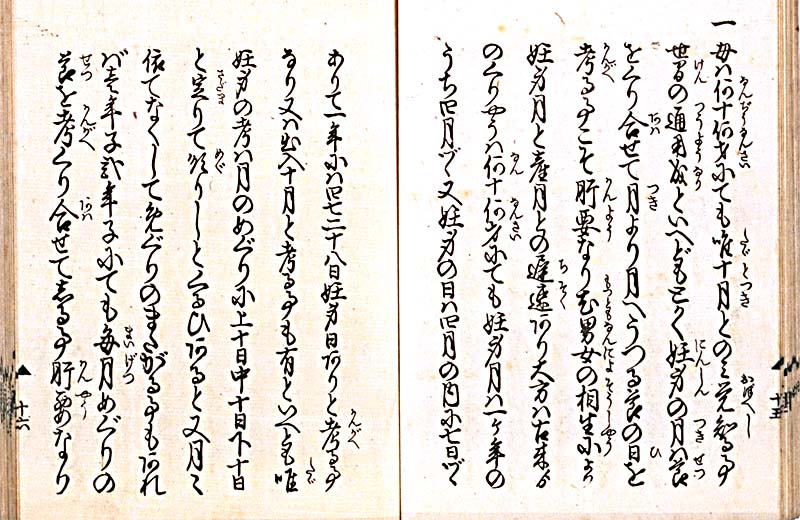 一 母ハ何十何才にても唯十月とのミ覚智る事
世間の通用成といへども正く妊身の月ハ節
をくり合せて月より月へうつる節の日を
考る事こそ肝要なり尤男女の相生により
妊身月と産月との遅速あり大方ハ古来ゟ
のくりやうハ何十何才にても妊身月ハ一ヶ年の
うち四月づゝ又妊身の日ハ四月の内に七日づゝ
十五
ありて一年にハ四七二十八日妊身日ありと考る事
なり又ハ出入十月と考る事も有といへとも唯
妊身の考ハ月のめぐりに上十日中十日下十日
と定りて くるひあると又月々
依てなくしてめぐりのまたがる事もあれ
ば壱年子弐年子にても毎月めぐりの
節を考くり合せてしる事肝要なり
十六